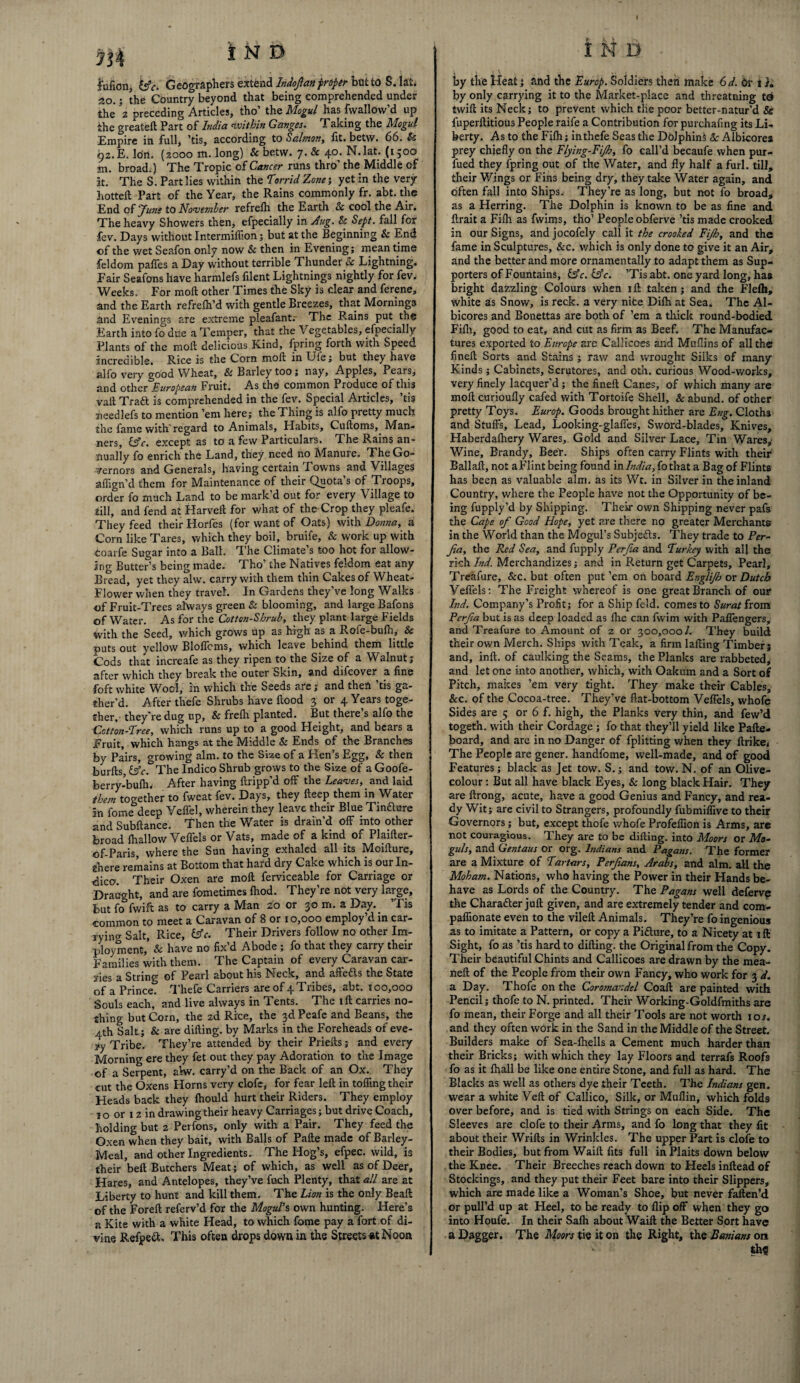 734 IND
fusion, &c. Geographers extend Indostan proper but to S. lat.
20.; the Country beyond that being comprehended under
the 2 preceding Articles, tho' the Mogul has swallow'd up
the greatest Part of India within Ganges. Taking the Mogul
Empire in full, 'tis, according to Salmon, sit. betw. 66. &
92. E. lon. (2000 m. long) & betw. 7. & 40. N. lat. (1500
m. broad.) The Tropic of Cancer runs thro' the Middle of
it. The S. Part lies within the Torrid Zone; yet in the very
hottest Part of the Year, the Rains commonly fr. abt. the
End of June to November refresh the Earth & cool the Air.
The heavy Showers then, especially in Aug. & Sept. fall for
sev. Days without Intermission; but at the Beginning & End
of the wet Season only now & then in Evening; mean time
seldom passes a Day without terrible Thunder & Lightning.
Fair Seasons have harmless silent Lightnings nightly for sev.
Weeks. For most other Times the Sky is clear and serene,
and the Earth refresh'd with gentle Breezes, that Mornings
and Evenings are extreme pleasant. The Rains put the
Earth into so due a Temper, that the Vegetables, especially
Plants of the most delicious Kind, spring forth with Speed
incredible. Rice is the Corn most in Use; but they have
also very good Wheat, & Barley too; nay, Apples, Pears,
and other European Fruit. As the common Produce of this
vast Tract is comprehended in the sev. Special Articles, 'tis
needless to mention 'em here; the Thing is also pretty much
the same with regard to Animals, Habits, Customs, Man-
ners, &c. except as to a few Particulars. The Rains an-
nually so enrich the Land, they need no Manure. The Go-
vernors and Generals, having certain Towns and Villages
assign'd them for Maintenance of their Quota's of Troops,
order so much Land to be mark'd out for every Village to
till, and send at Harvest for what of the Crop they please.
They feed their Horses (for want of Oats) with Donna, a
Corn like Tares, which they boil, bruise, & work up with
coarse Sugar into a Ball. The Climate's too hot for allow-
ing Butter's being made. Tho' the Natives seldom eat any
Bread, yet they alw. carry with them thin Cakes of Wheat-
Flower when they travel. In Gardens they've long Walks
of Fruit-Trees always green & blooming, and large Basons
of Water. As for the Cotton-Shrub, they plant large Fields
with the Seed, which grows up as high as a Rose-bush, &
puts out yellow Blossems, which leave behind them little
Cods that increase as they ripen to the Size of a Walnut;
after which they break the outer Skin, and discover a fine
soft white Wool, in which the Seeds are; and then 'tis ga-
ther'd. After these Shrubs have stood 3 or 4 Years toge-
ther, they're dug up, & fresh planted. But there's also the
Cotton-Tree, which runs up to a good Height, and bears a
Fruit, which hangs at the Middle & Ends of the Branches
by Pairs, growing alm. to the Size of a Hen's Egg, & then
bursts, &c. The Indico Shrub grows to the Size of a Goose-
berry-bush. After having stripp'd off the Leaves, and laid
them together to sweat sev. Days, they steep them in Water
in some deep Vessel, wherein they leave their Blue Tincture
and Substance. Then the Water is drain'd off into other
broad shallow Vessels or Vats, made of a kind of Plaister-
of-Paris, where the Sun having exhaled all its Moisture,
there remains at Bottom that hard dry Cake which is our In-
dico. Their Oxen are most serviceable for Carriage or
Draught, and are sometimes shod. They're not very large,
but so swift as to carry a Man 20 or 30 m. a Day. 'Tis
common to meet a Caravan of 8 or 10,000 employ'd in car-
rying Salt, Rice, &c. Their Drivers follow no other Im-
ployment, & have no fix'd Abode; so that they carry their
Families with them. The Captain of every Caravan car-
ries a String of Pearl about his Neck, and affects the State
of a Prince. These Carriers are of 4 Tribes, abt. 100,000
Souls each, and live always in Tents. The 1st carries no-
thing but Corn, the 2d Rice, the 3d Pease and Beans, the
4th Salt; & are disting. by Marks in the Foreheads of eve-
ry Tribe. They're attended by their Priests; and every
Morning ere they set out they pay Adoration to the Image
of a Serpent, alw. carry'd on the Back of an Ox. They
cut the Oxens Horns very close, for fear lest in tossing their
Heads back they should hurt their Riders. They employ
10 or 12 in drawing their heavy Carriages; but drive Coach,
holding but 2 Persons, only with a Pair. They feed the
Oxen when they bait, with Balls of Paste made of Barley-
Meal, and other Ingredients. The Hog's, espec. wild, is
their best Butchers Meat; of which, as well as of Deer,
Hares, and Antelopes, they've such Plenty, that all are at
Liberty to hunt and kill them. The Lion is the only Beast
of the Forest reserv'd for the Mogul's own hunting. Here's
a Kite with a white Head, to which some pay a sort of di-
vine Respect. This often drops down in the Streets at Noon
IND
by the Heat; and the Europ. Soldiers then make 6d. or 1s.
by only carrying it to the Market-place and threatning to
twist its Neck; to prevent which the poor better-natur'd &
superstitious People raise a Contribution for purchasing its Li-
berty. As to the Fish; in these Seas the Dolphins & Albicores
prey chiefly on the Flying-Fish, so call'd because when pur-
sued they spring out of the Water, and fly half a furl. till,
their Wings or Fins being dry, they take Water again, and
often fall into Ships. They're as long, but not so broad,
as a Herring. The Dolphin is known to be as fine and
strait a Fish as swims, tho' People observe 'tis made crooked
in our Signs, and jocosely call it the crooked Fish, and the
same in Sculptures, &c. which is only done to give it an Air,
and the better and more ornamentally to adapt them as Sup-
porters of Fountains, &c. &c. 'Tis abt. one yard long, has
bright dazzling Colours when 1st taken; and the Flesh,
white as Snow, is reck. a very nice Dish at Sea. The Al-
bicores and Bonettas are both of 'em a thick round-bodied
Fish, good to eat, and cut as firm as Beef. The Manufac-
tures exported to Europe are Callicoes and Muslins of all the
finest Sorts and Stains; raw and wrought Silks of many
Kinds; Cabinets, Scrutores, and oth. curious Wood-works,
very finely lacquer'd; the finest Canes, of which many are
most curiously cased with Tortoise Shell, & abund. of other
pretty Toys. Europ. Goods brought hither are Eng. Cloths
and Stuffs, Lead, Looking-glasses, Sword-blades, Knives,
Haberdashery Wares, Gold and Silver Lace, Tin Wares,
Wine, Brandy, Beer. Ships often carry Flints with their
Ballast, not a Flint being found in India, so that a Bag of Flints
has been as valuable alm. as its Wt. in Silver in the inland
Country, where the People have not the Opportunity of be-
ing supply'd by Shipping. Their own Shipping never pass
the Cape of Good Hope, yet are there no greater Merchants
in the World than the Mogul's Subjects. They trade to Per-
sia, the Red Sea, and supply Persia and Turkey with all the
rich Ind. Merchandizes; and in Return get Carpets, Pearl,
Treasure, &c. but often put 'em on board English or Dutch
Vessels: The Freight whereof is one great Branch of our
Ind. Company's Profit; for a Ship seld. comes to Surat from
Persia but is as deep loaded as she can swim with Passengers,
and Treasure to Amount of 2 or 300,000 l. They build
their own Merch. Ships with Teak, a firm lasting Timber;
and, inst. of caulking the Seams, the Planks are rabbeted,
and let one into another, which, with Oakum and a Sort of
Pitch, makes 'em very tight. They make their Cables,
&c. of the Cocoa-tree. They've flat-bottom Vessels, whose
Sides are 5 or 6 f. high, the Planks very thin, and sew'd
togeth. with their Cordage; so that they'll yield like Paste-
board, and are in no Danger of splitting when they strike.
The People are gener. handsome, well-made, and of good
Features; black as Jet tow. S.; and tow. N. of an Olive-
colour: But all have black Eyes, & long black Hair. They
are strong, acute, have a good Genius and Fancy, and rea-
dy Wit; are civil to Strangers, profoundly submissive to their
Governors; but, except those whose Profession is Arms, are
not couragious. They are to be disting. into Moors or Mo-
guls, and Gentaus or org. Indians and Pagans. The former
are a Mixture of Tartars, Persians, Arabs, and alm. all the
Moham. Nations, who having the Power in their Hands be-
have as Lords of the Country. The Pagans well deserve
the Character just given, and are extremely tender and com-
passionate even to the vilest Animals. They're so ingenious
as to imitate a Pattern, or copy a Picture, to a Nicety at 1st
Sight, so as 'tis hard to disting. the Original from the Copy.
Their beautiful Chints and Callicoes are drawn by the mea-
nest of the People from their own Fancy, who work for 3 d.
a Day. Those on the Coromandel Coast are painted with
Pencil; those to N. printed. Their Working-Goldsmiths are
so mean, their Forge and all their Tools are not worth 10s.
and they often work in the Sand in the Middle of the Street.
Builders make of Sea-shells a Cement much harder than
their Bricks; with which they lay Floors and terrass Roofs
so as it shall be like one entire Stone, and full as hard. The
Blacks as well as others dye their Teeth. The Indians gen.
wear a white Vest of Callico, Silk, or Muslin, which folds
over before, and is tied with Strings on each Side. The
Sleeves are close to their Arms, and so long that they sit
about their Wrists in Wrinkles. The upper Part is close to
their Bodies, but from Waist sits full in Plaits down below
the Knee. Their Breeches reach down to Heels instead of
Stockings, and they put their Feet bare into their Slippers,
which are made like a Woman's Shoe, but never fasten'd
or pull'd up at Heel, to be ready to slip off when they go
into House. In their Sash about Waist the Better Sort have
a Dagger. The Moors tie it on the Right, the Banians on
the